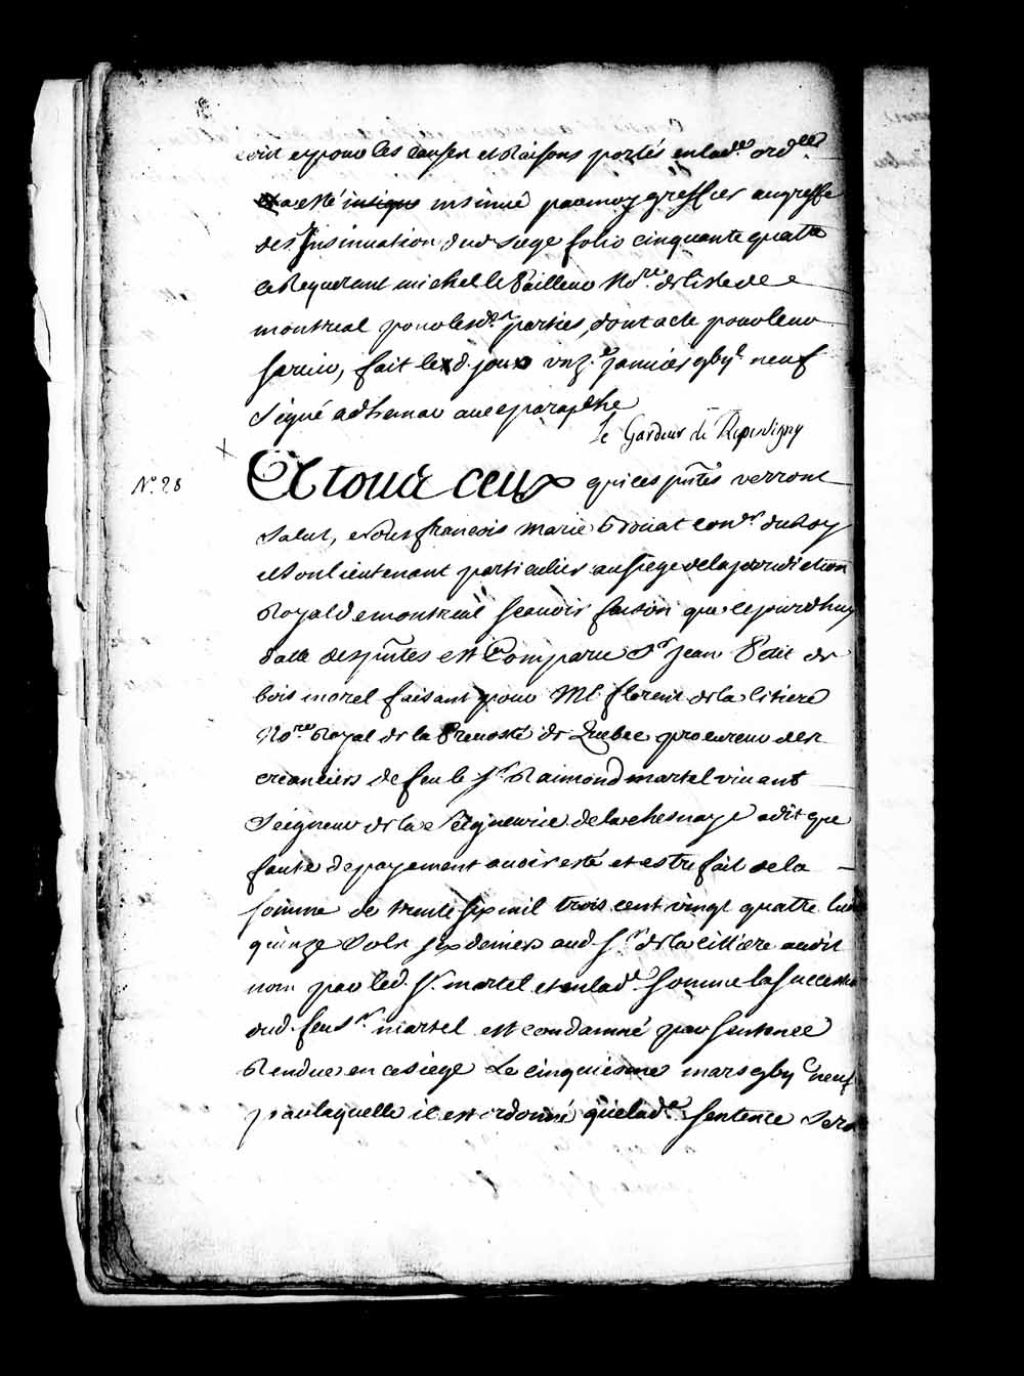 et pour les causes et Raisons portés en lad.e ord.ce
a esté insinué par moy greffier au greffe
des Insinuation dud siege folio cinquante quatre
ce Requerant michel le Pailleur No.re de lisle de
montreal pour lesd.s parties, dont acte pour leur
servir, fait led. jour unz.e janvier gbij.c neuf
signé adhemar avec paraphe
Le Gardeur de Repentigny
N.o 28
A tous ceux qui ces pñtes verront
salut, Nous francois marie Bouat con.er du Roy
et son lieutenant particulier au siege de la juridiction
Royal de montreal scavoir faisons que cejourdhuy
datte des pñtes est Comparu S.r jean Petit de
bois morel faisant pour M.e florent de la litiere
No.re Royal de la Prevosté de Quebec procureur des
creanciers de feu le S.r Raimond martel vivant
Seigneur de la Seigneurie de lachesnaye a dit que
faute de payement avoir esté et estre fait de la
somme de trente six mil trois cent vingt quatre
quinze sols six deniers aud S.r de la cittiere audit
nom par led. S.r martel et en lad.e somme la succession
dud. feu S.r martel est condamné par sentence
Rendue en ce siege Le cinquiesme mars gbij.c neuf
par laquelle il est ordonné que lad.e sentence sera